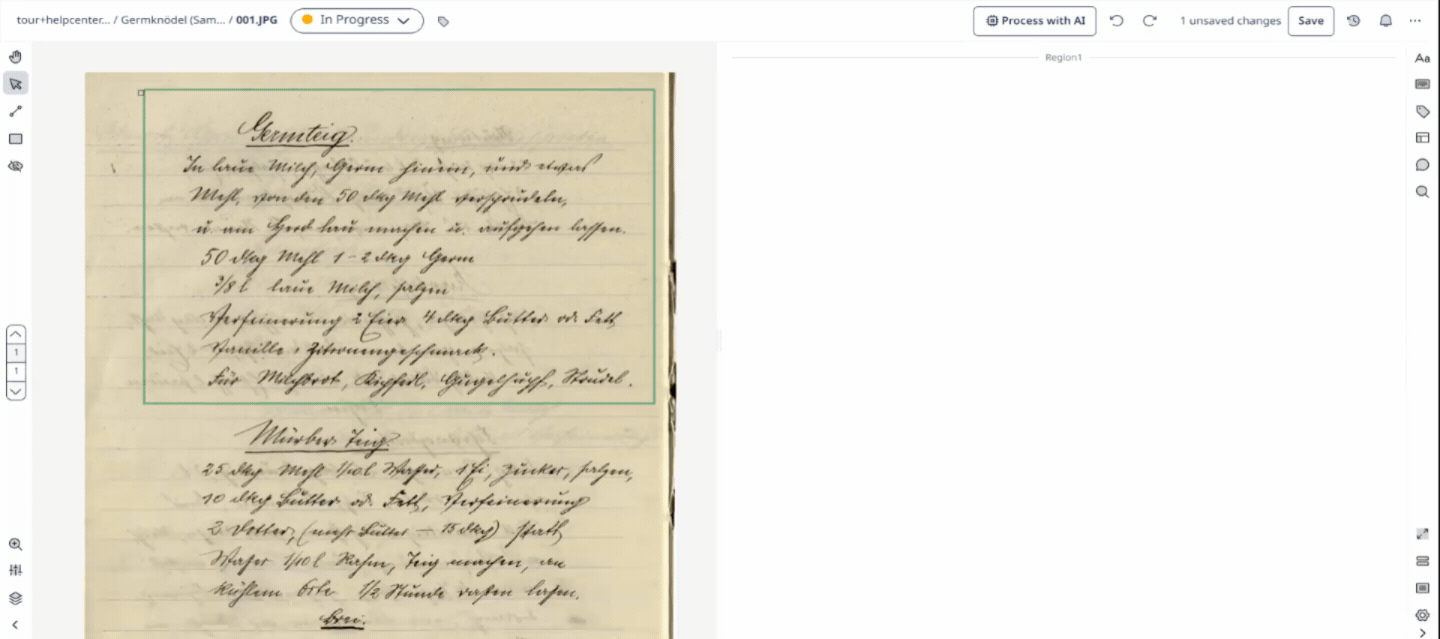 tour+helpcenter... / Germknödel (Sam... / 001.JPG
In Progress
Process with AI
1 unsaved changes
Save
Region1
Aa
Germteig.
In laue Milch, Germ hinein, und etwas
Mehl, von den 50 dkg Mehl versprudeln,
u. am Herd lau machen u. aufgehen lassen.
50 dkg Mehl 1-2 dkg Germ
3/8 l laue Milch, salzen
Verfeinerung 2 Eier 4 dkg Butter od. Fett
Vanille, Zitronengeschmack.
Für Milchbrot, Kipferl, Gugelhupf, Strudel.
Mürber Teig.
25 dkg Mehl 1/10 l Wasser, 1 Ei, Zucker, salzen,
10 dkg Butter od. Fett, Verfeinerung
2 Dotter, (mehr Butter – 15 dkg) statt
Wasser 1/10 l Rahm, Teig machen, an
kühlem Orte 1/2 Stunde rasten lassen.
Brei.
1
1